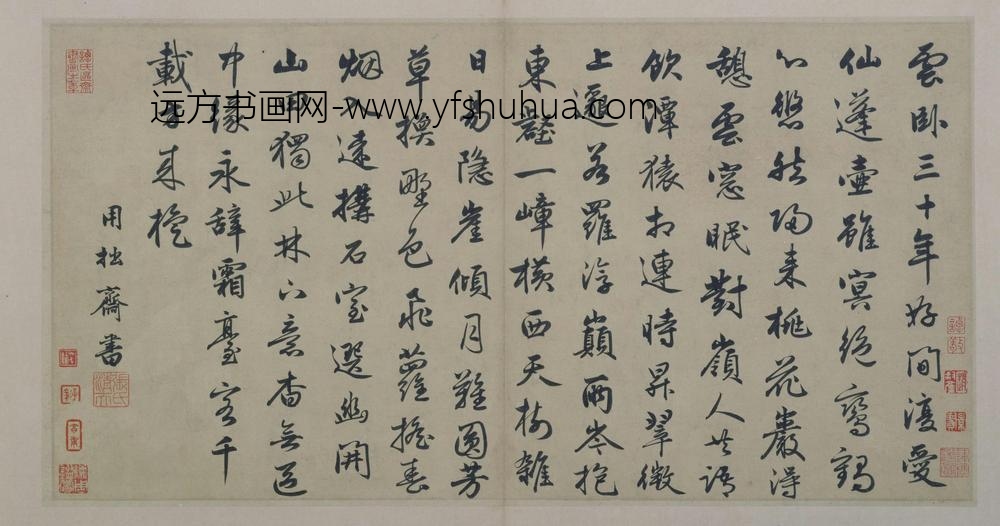 雲卧三十年好閒復愛
仙蓬壺雖冥絕鸞鶴
心悠然歸来桃花巖得
憩雲窓眠對嶺人共語
飲潭猿相連時昇翠微
上邈若羅浮巔兩岑抱
東壑一嶂橫西天樹雜
日易隐崖傾月難圓芳
草換野色飛蘿摇春
烟入遠構石室選幽開
山田獨此林下意杳無區
中緣永辞霜臺客千
載方来旋
用拙齋書
远方书画网-www.yfshuhua.com